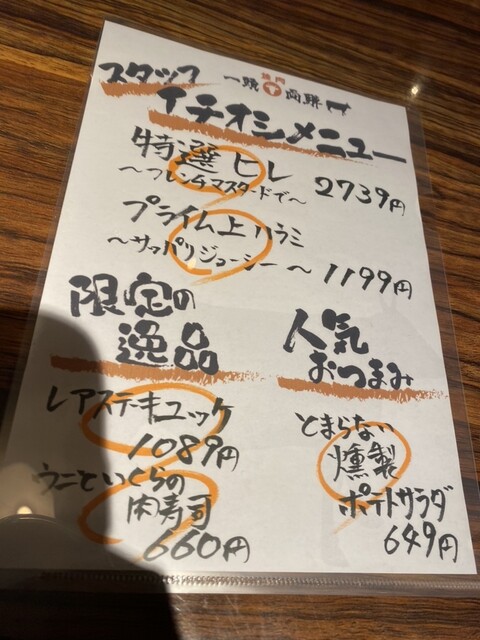 一頭両膳
スタッフ
イチオシメニュー
特選ヒレ
〜フレンチマスタードで〜 2739円
プライム上ハラミ
〜サッパリジューシー〜 1199円
限定の
逸品
レアステーキユッケ
1089円
ウニといくらの
肉寿司
660円
人気
おつまみ
とまらない
燻製
ポテトサラダ
649円